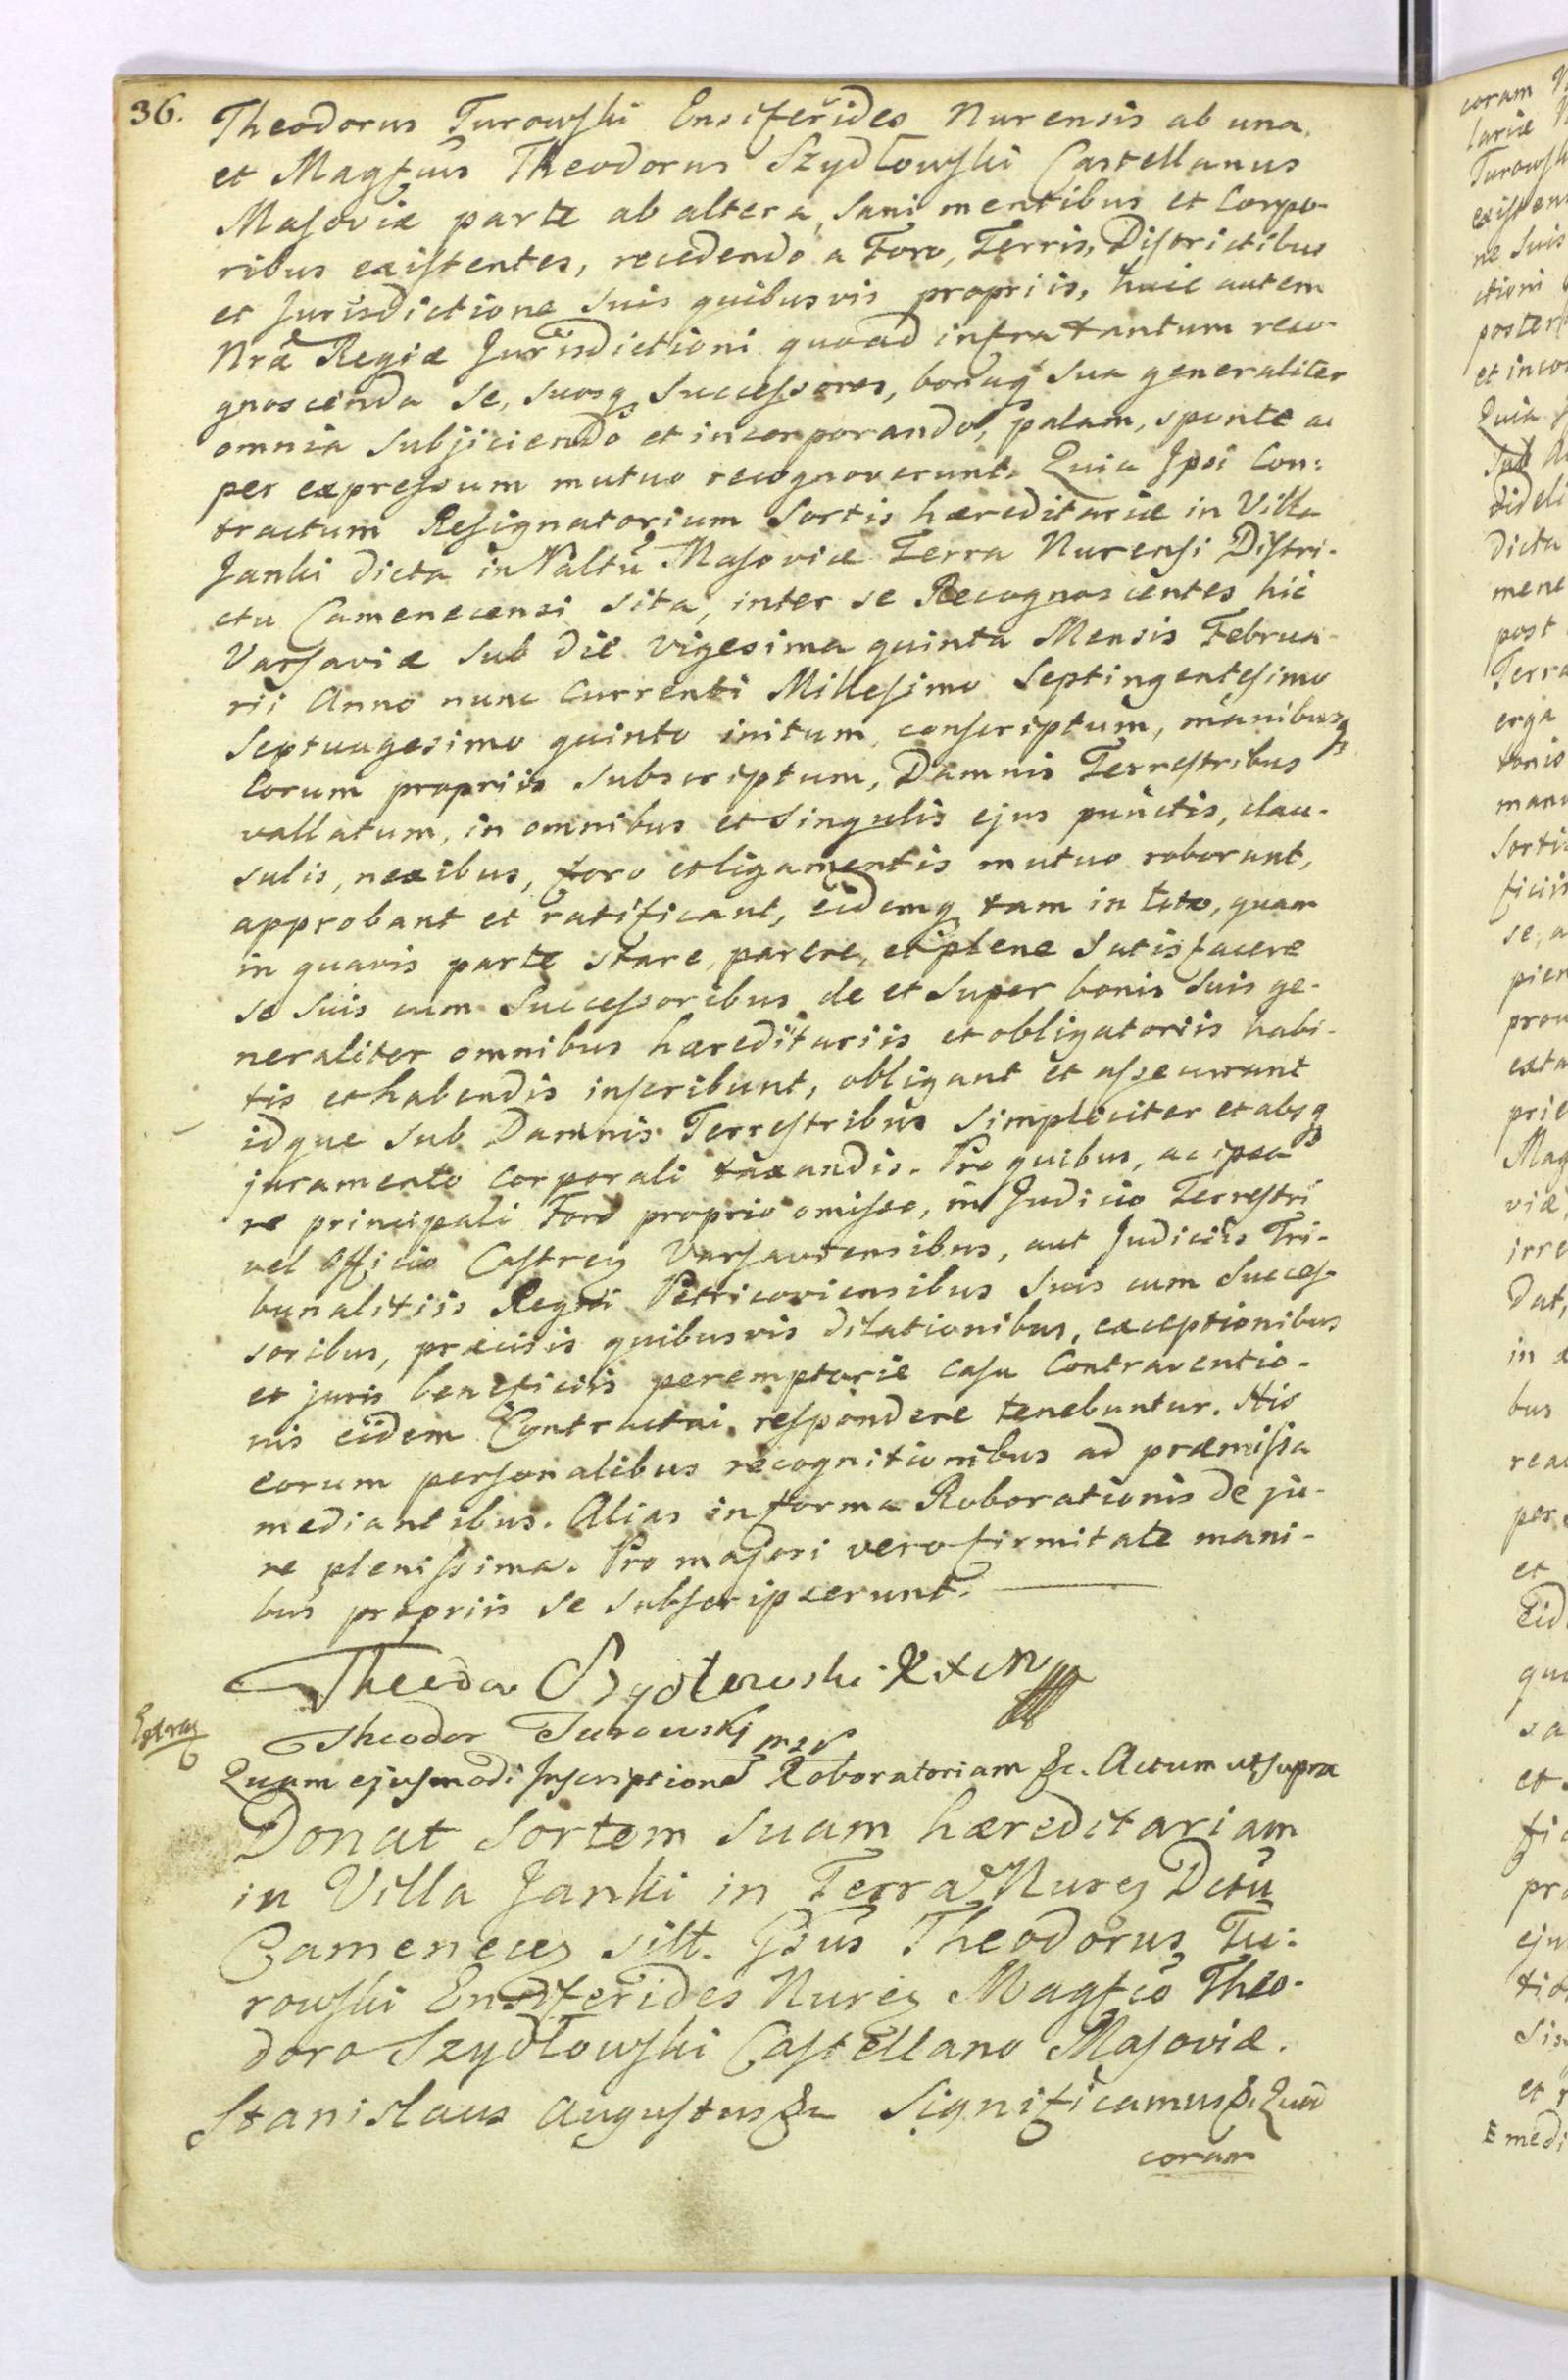 36.
Theodorus Turowski Ensiferides Nurensis ab una
et Magfcus Theodorus Szydłowski Castellanus
Masoviæ parte ab altera, sani mentibus et Corpo-
ribus existentes, recedendo a Foro, Terris, Districtibus
et Jurisdictione suis quibusvis propriis, huic autem
Nræ Regiæ Jurisdictioni quoad infra tantum reco-
gnoscenda se, suosq successores, bonaq sua generaliter
omnia subjiciendo et incorporando, palam, sponte ac
per expressum mutuo recognoverunt. Quia Ipsi Con:
tractum Resignatorium sortis hæreditariæ in Villa
Janki dicta in Palttu Masoviæ Terra Nurensi Distri-
ctu Camenecensi sita, inter se Recognoscentes hic
Varsaviæ sub die vigesima quinta Mensis Februa-
rii Anno nunc currenti Millesimo Septingentesimo
Septuagesimo quinto initum, conscriptum, manibusq
Eorum propriis subscriptum, Damnis Terrestribus
vallatum, in omnibus et singulis ejus punctis, clau-
sulis, nexibus, foro et ligamentis mutuo roborant,
approbant et ratificant, eidemq tam in toto, quam
in quavis parte stare, parere, et plene satisfacere
se suis cum Successoribus de et super bonis suis ge-
neraliter omnibus hæreditariis et obligatoriis habi-
tis et habendis inscribunt, obligant et assecurant
idque sub Damnis Terrestribus simpliciter et absq
juramento corporali taxandis. Pro quibus, ac ipsa
re principali Foro proprio omisso, in Judicio Terrestri
vel Officio Castren Varsaviensibus, aut Judiciis Tri-
bunalitiis Regni Petricoviensibus suis cum Succes-
soribus, præcisis quibusvis dilationibus, exceptionibus
et juris beneficiis peremptorie casu Contraventio-
nis eidem Contractui respondere tenebuntur. His
eorum personalibus recognitionibus ad præmissa
mediantibus. Alias in forma Roborationis de ju-
re plenissima. Pro majori vero firmitate mani-
bus propriis se subscripserunt.
Theodor Szydłowski K x M
Theodor Turowski mp
Extrad
Quam ejusmodi Inscriptionē Roboratoriam &c. Actum ut supra
Donat sortem suam hæreditariam
in Villa Janki in Terra Nuren Dctu
Camenecen sitt. Gsus Theodorus Tu:
rowski Ensiferides Nuren Magfco Theo-
doro Szydłowski Castellano Masoviæ.
Stanislaus Augustus &c Significamus &c Quia
coram